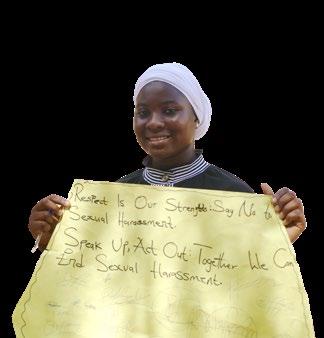 Respect Is Our Strength: Say No to
Sexual Harassment.
Speak Up, Act Out: Together We Can
End Sexual Harassment.